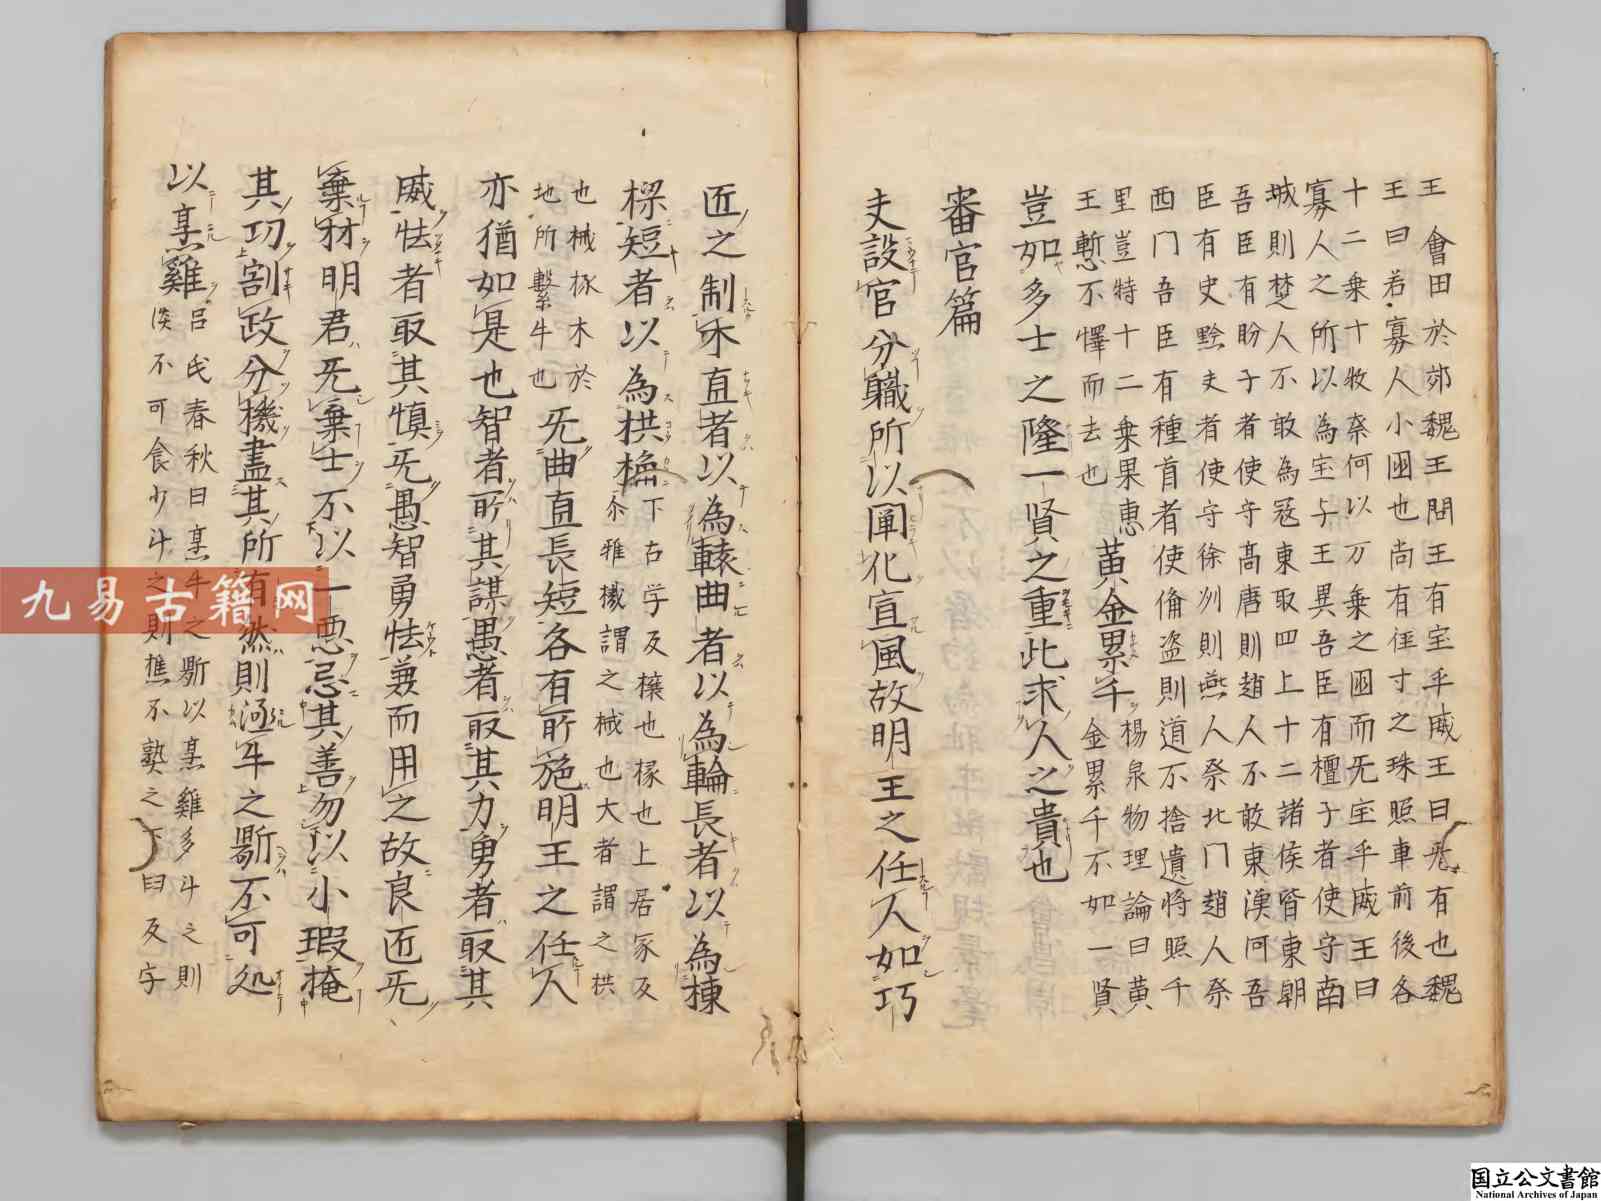 王會田於郊魏王問王有宝乎威王曰无有也魏
王曰若寡人小國也尚有徑寸之珠照車前後各
十二乗十牧奈何以万乗之國而无宝乎威王曰
寡人之所以為宝与王異吾臣有檀子者使守南
城則楚人不敢為冦東取四上十二諸侯皆東朝
吾臣有盼子者使守高唐則趙人不敢東漁河吾
臣有史黔夫者使守徐州則燕人祭北门趙人祭
西门吾臣有種首者使俻盗則道不捨遺将照千
里豈特十二乗果恵
王慙不懌而去也
黄金累千
楊泉物理論曰黄
金累千不如一賢
豈如多士之隆一賢之重此求人之貴也
審官篇
夫設官分職所以闡化宣風故明王之任人如巧
匠之制木直者以為轅曲者以為輪長者以為棟
樑短者以為栱桷
下古学反榱也椽也上居冢反
尒雅樴謂之杙也大者謂之栱
也樴椓木於
地所繋牛也
无曲直長短各有所施明王之任人
亦猶如是也智者所其謀愚者取其力勇者取其
威怯者取其慎无愚智勇怯兼而用之故良匠无
棄材明君无棄士不以一悪忌其善勿以小瑕掩
其功割政分機盡其所有然則凾牛之鼎不可処
以烹雞
呂氏春秋曰烹牛之鼎以烹雞多斗之則
淡不可食少斗之則焦不熟之下曰反字
九易古籍网
国立公文書館
National Archives of Japan